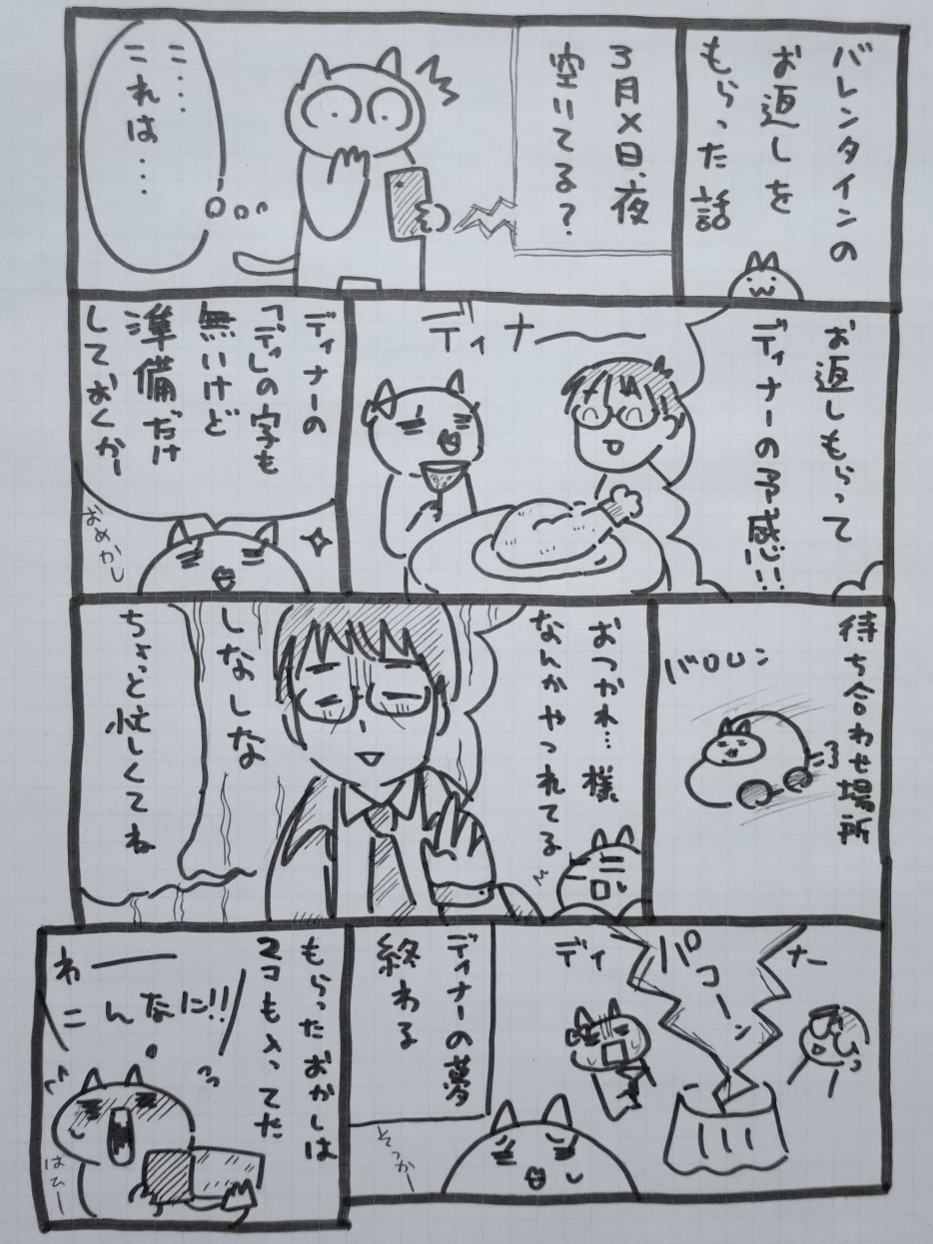 バレンタインの
お返しを
もらった話
3月×日、夜
空いてる?
こ・・・
これは・・・
お返しもらって
ディナーの予感!!
ディナー
ディナーの
「ディ」の字も
無いけど
準備だけ
しておくかー
おめかし
待ち合わせ場所
バロロン
おつかれ…様
なんかやつれてる
しなしな
ちょっと忙しくてね
ディ
ナー
パコーン
ディナーの夢
終わる
そっかー
もらったおかしは
2コも入ってた
わー
こんなに!!
はひー